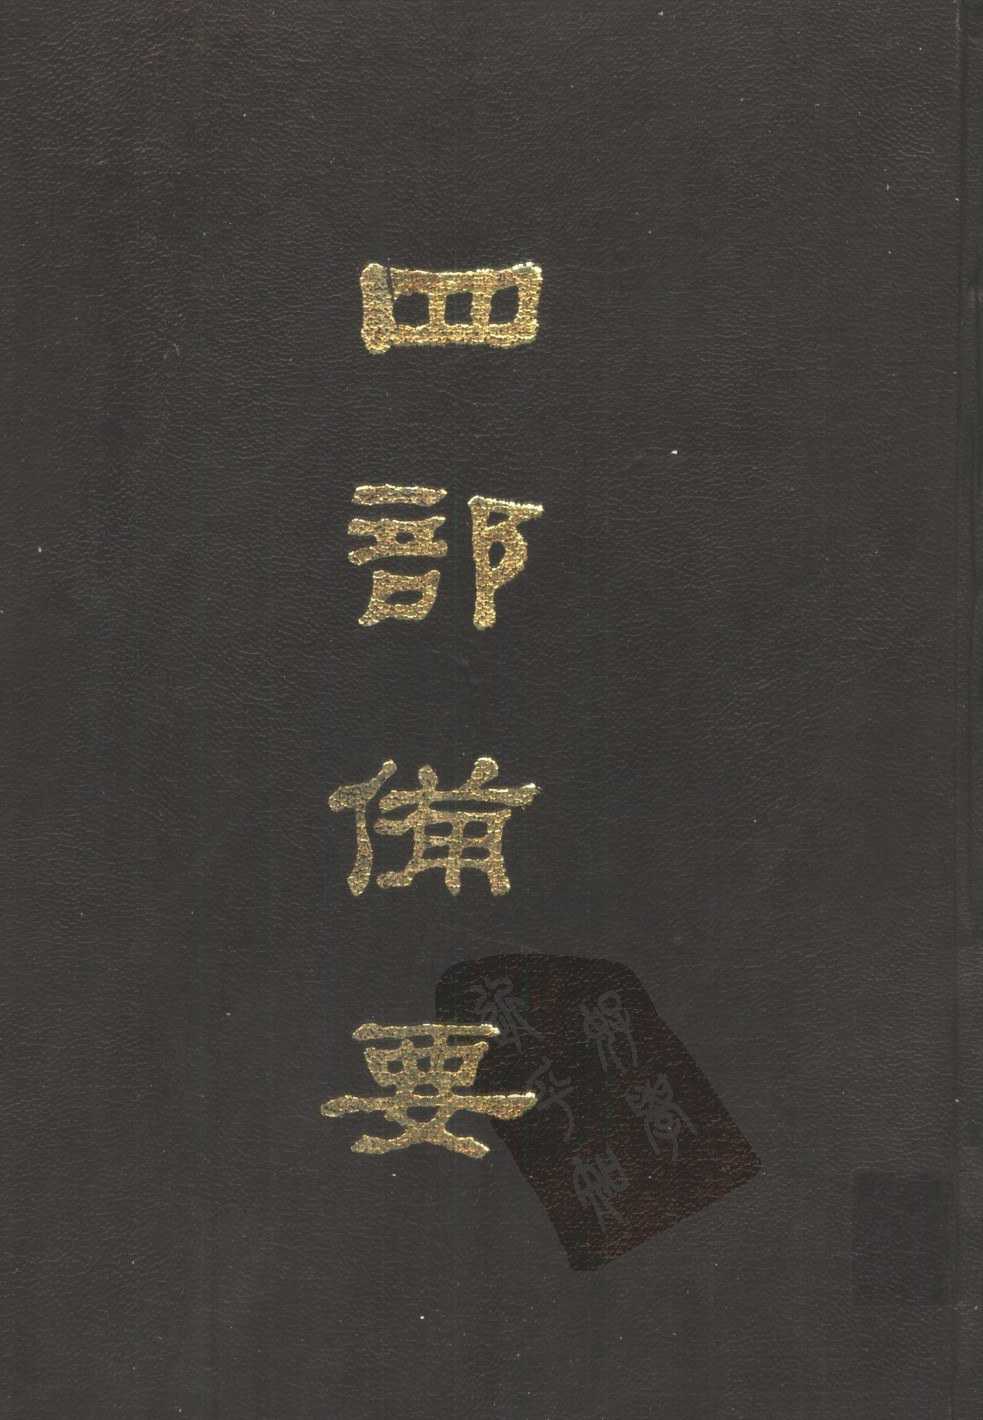 四部備要